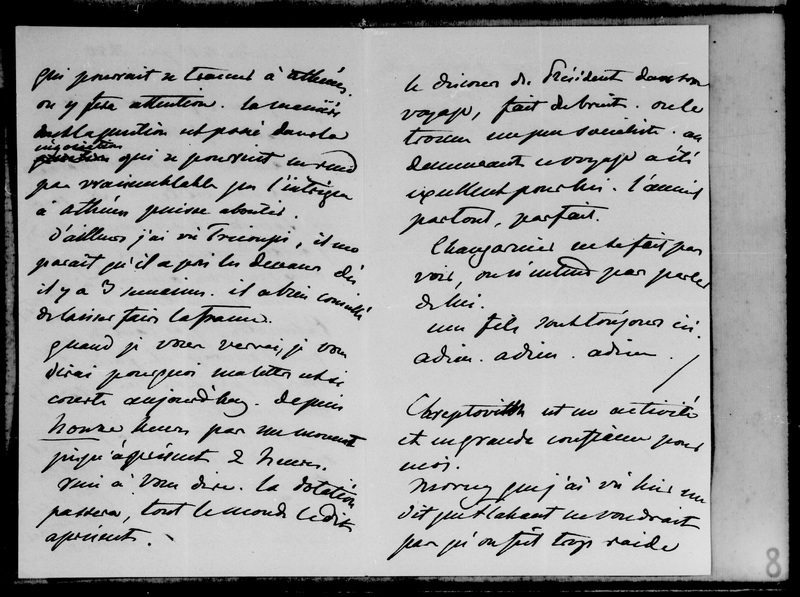 qui pourrait se tramer à athénes.
on y fera attention. la manière
dont la question est posée dans la
inquisition
qui se poursuit ne rend
pas vraisemblable que l'intrigue
à athénes puisse aboutir.
D'ailleurs j'ai vu Tricoupi, il me
parait qu'il a pris les devans dès
il y a 3 semaines. il a bien conseillé
de laisser faire la france.
quand je vous verrai, je vous
dirai pourquoi ma lettre est si
courte aujourd'huy. depuis
honze heures pas un moment
jusqu'à présent 2 heures.
rien à vous dire. la dotation
passera, tout le monde le dit
à présent.
le discours du Président dans son
voyage, fait du bruit. on le
trouve un peu socialiste. au
demeurant ce voyage a été
excellent pour lui. l'accueil
partout, parfait.
Changarnier ne se fait pas
voir, on n'entend pas parler
de lui.
mes fils sont toujours ici.
adieu. adieu. adieu.
Chreptovitch est en activité
et en grande confiance pour
moi.
Morny que j'ai vu hier me
dit que Lahante ne voudrait
pas qu'on fût trop raide
8